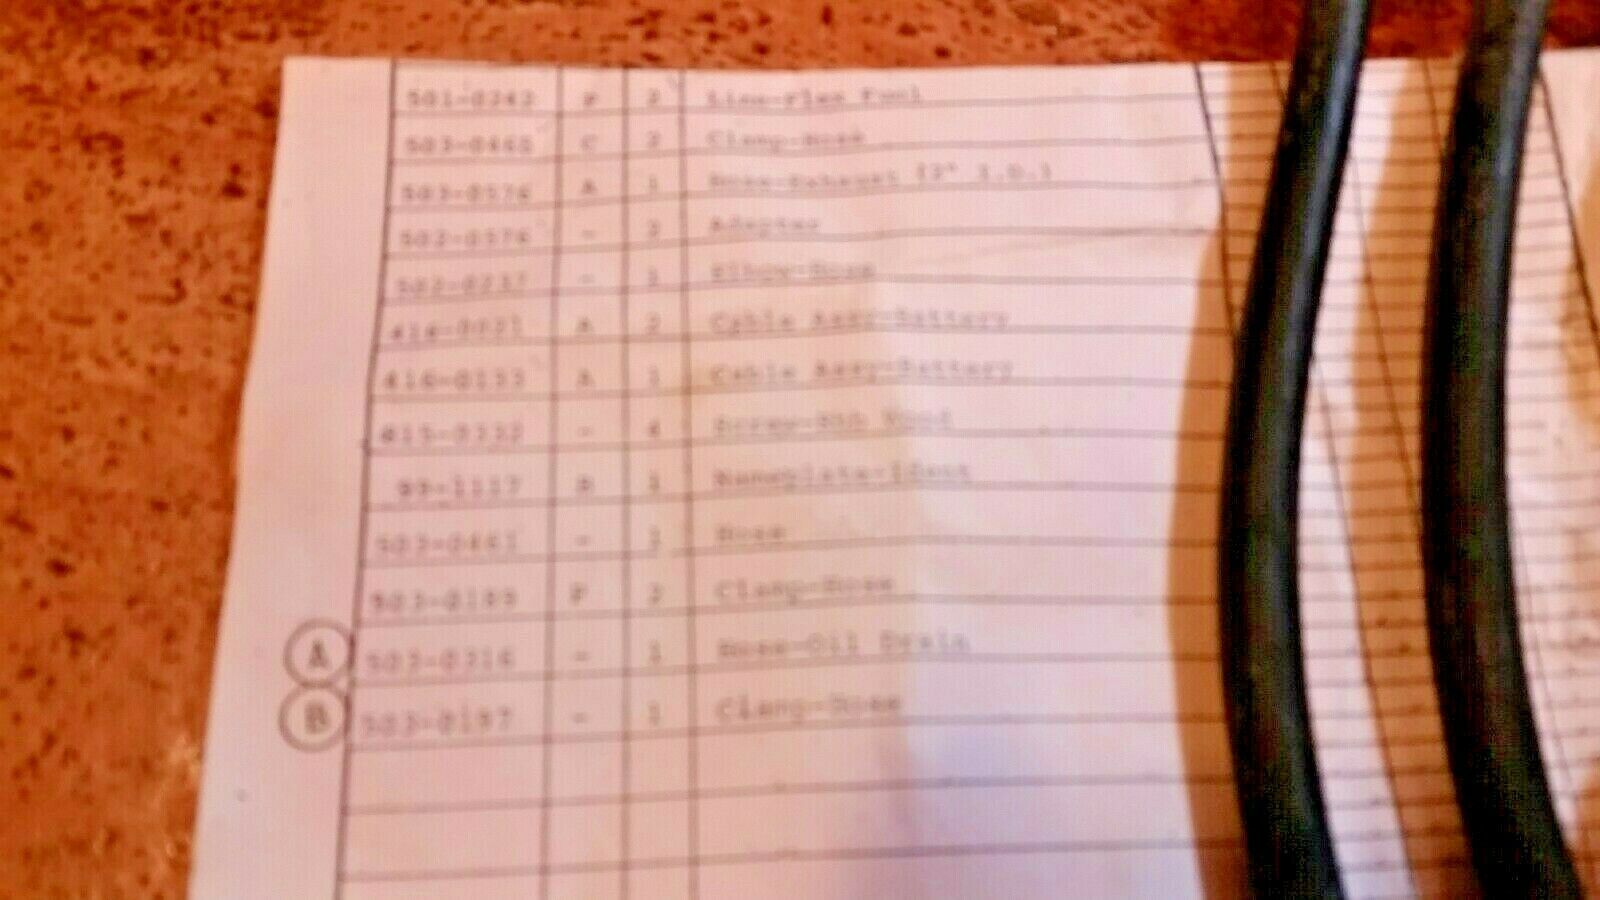 501-0242 P 2 Line-Flex Fuel
C 2 Clamp-Hose
503-0576 A 1 Hose-Exhaust (2" I.D.)
- 2 Adapter
- 1 Elbow-Hose
A 2 Cable Assy-Battery
416-0133 A 1 Cable Assy-Battery
815-0332 - 4
99-1117 1 Nameplate-Ident
503-0461 - 1 Hose
503-0189 P 2 Clamp-Hose
A 503-0316 - 1 Hose-Oil Drain
B 503-0197 - 1 Clamp-Hose